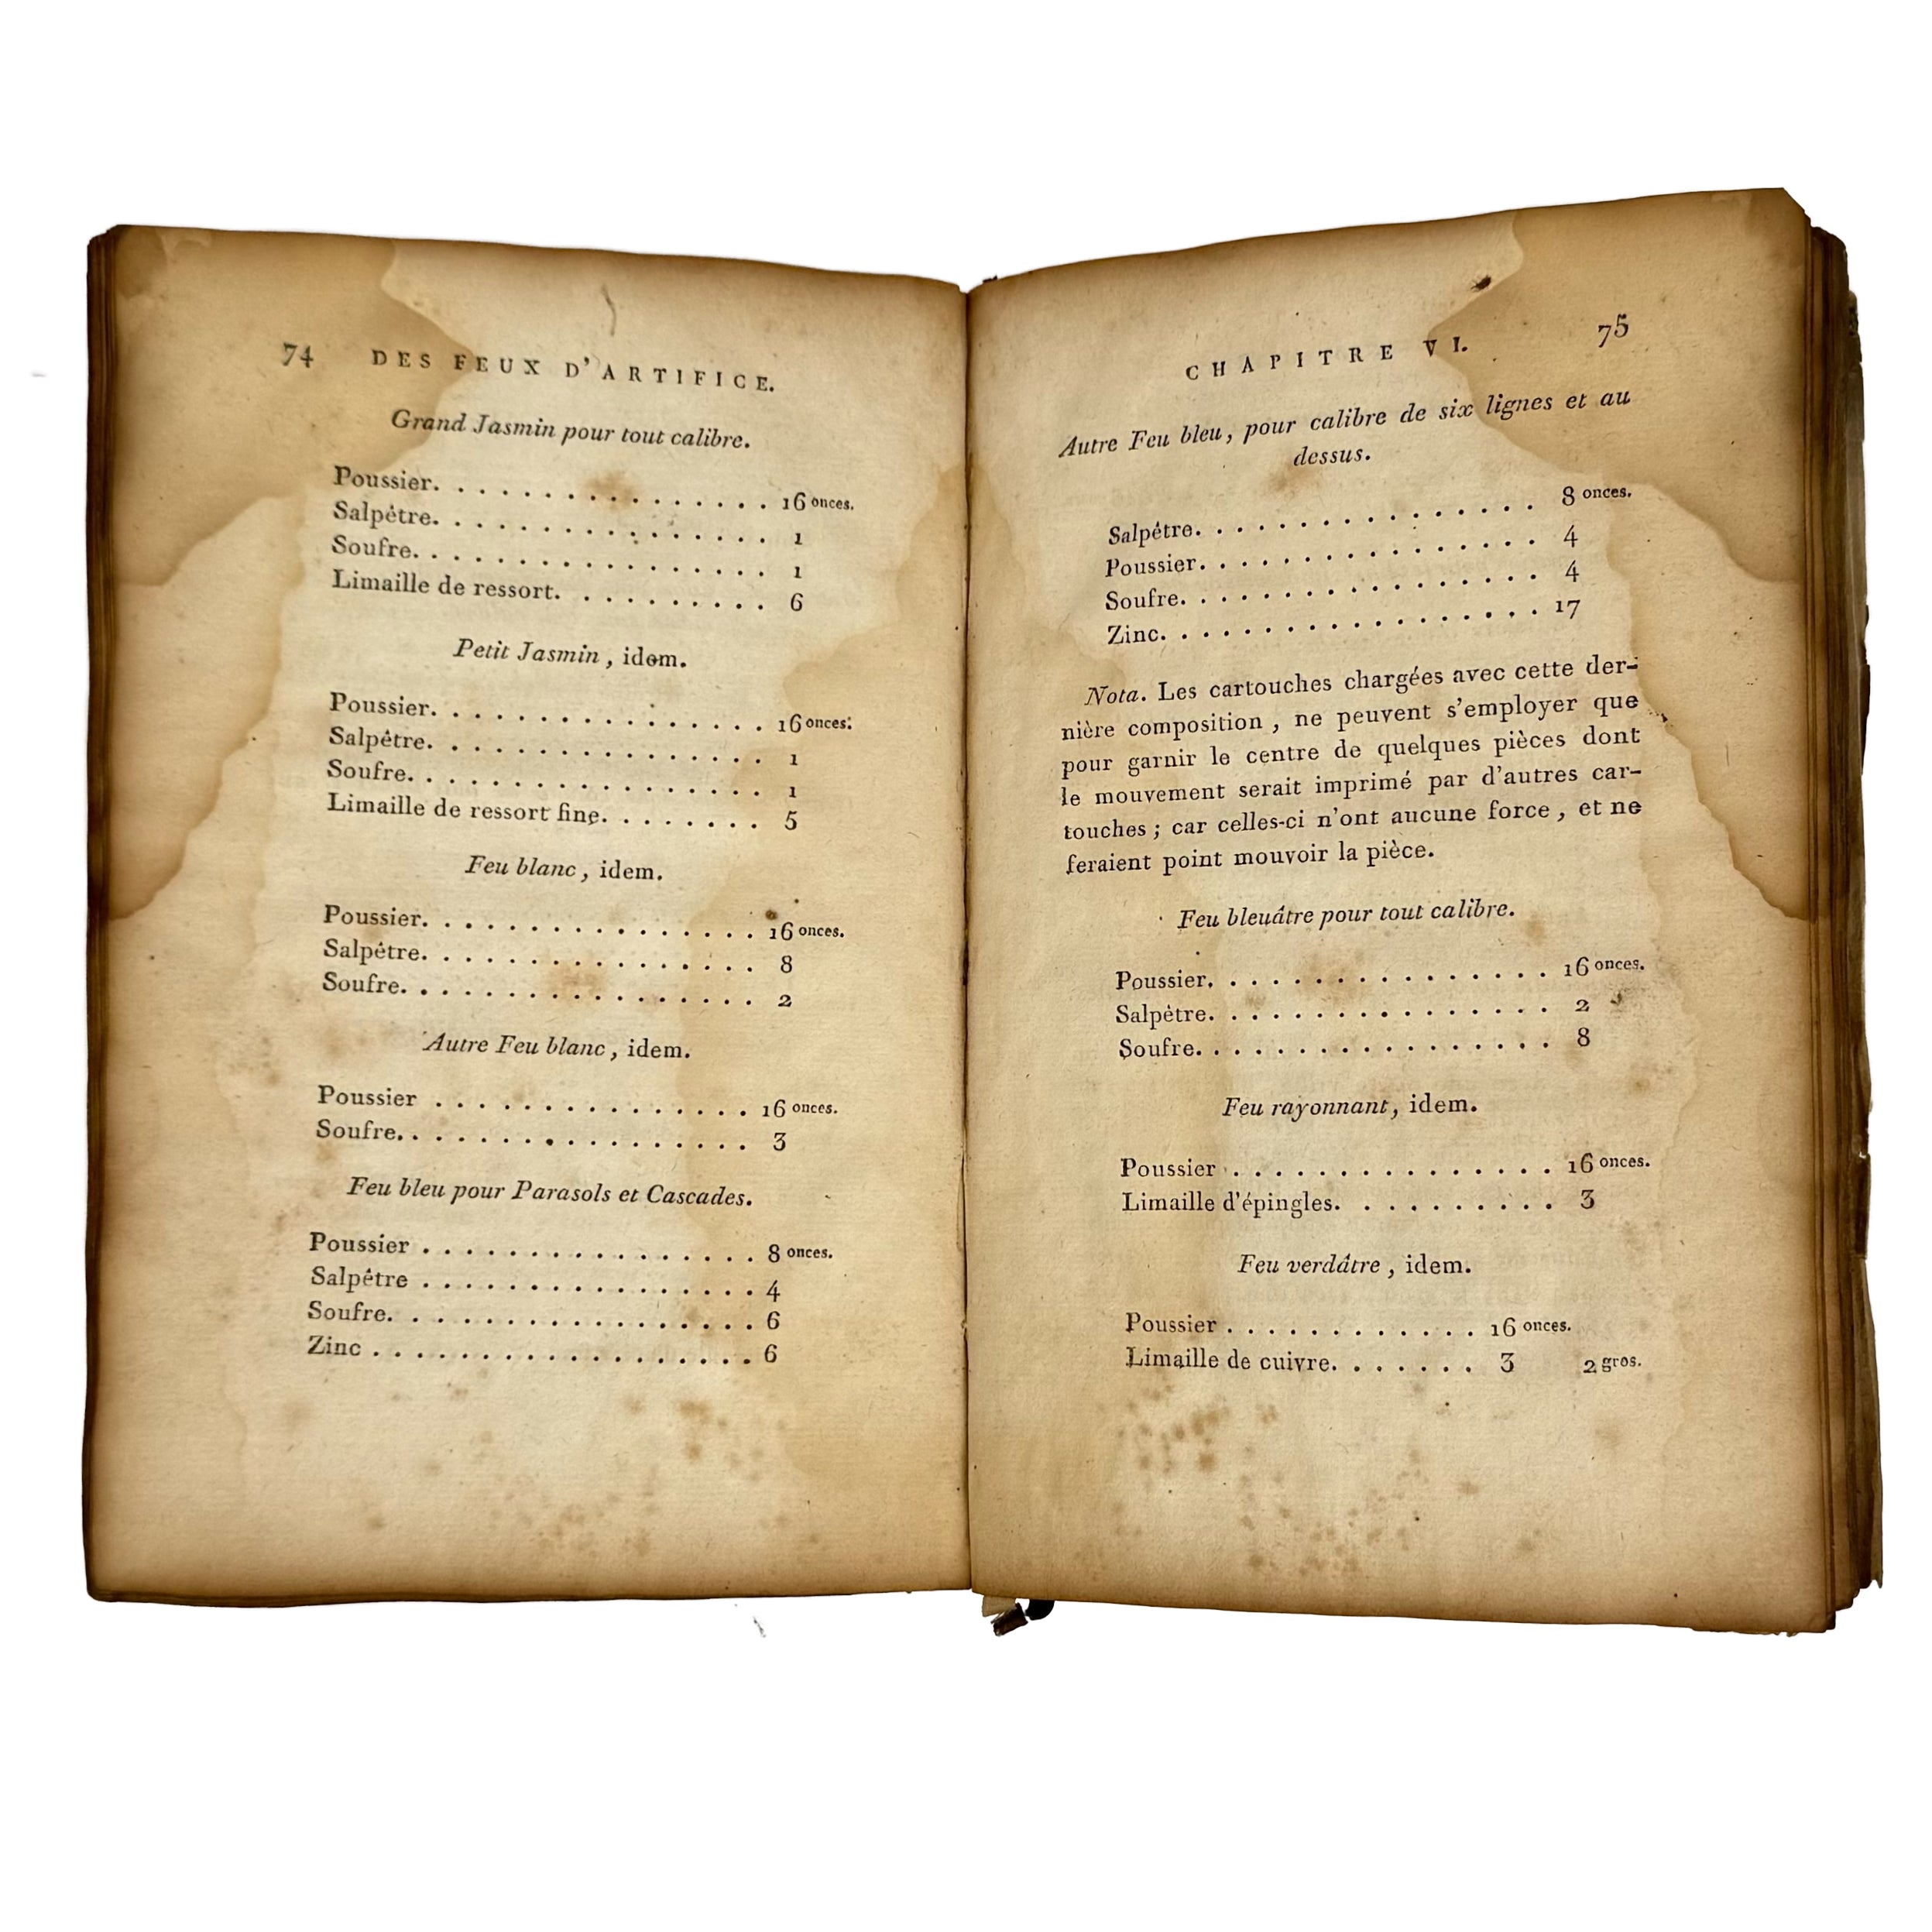 74 DES FEUX D'ARTIFICE.
Grand Jasmin pour tout calibre.
Poussier. . . . . . . . . . . . . . . . 16 onces.
Salpêtre. . . . . . . . . . . . . . . . 1
Soufre. . . . . . . . . . . . . . . . . 1
Limaille de ressort. . . . . . . . . . 6
Petit Jasmin, idem.
Poussier. . . . . . . . . . . . . . . . 16 onces.
Salpêtre. . . . . . . . . . . . . . . . 1
Soufre. . . . . . . . . . . . . . . . . 1
Limaille de ressort fine. . . . . . . . 5
Feu blanc, idem.
Poussier. . . . . . . . . . . . . . . . 16 onces.
Salpêtre. . . . . . . . . . . . . . . . 8
Soufre. . . . . . . . . . . . . . . . . 2
Autre Feu blanc, idem.
Poussier . . . . . . . . . . . . . . . 16 onces.
Soufre. . . . . . . . . . . . . . . . . 3
Feu bleu pour Parasols et Cascades.
Poussier . . . . . . . . . . . . . . . . 8 onces.
Salpêtre . . . . . . . . . . . . . . . . 4
Soufre. . . . . . . . . . . . . . . . . 6
Zinc . . . . . . . . . . . . . . . . . . 6
CHAPITRE VI. 75
Autre Feu bleu, pour calibre de six lignes et au
dessus.
Salpêtre. . . . . . . . . . . . . . . . 8 onces.
Poussier. . . . . . . . . . . . . . . . 4
Soufre. . . . . . . . . . . . . . . . . 4
Zinc. . . . . . . . . . . . . . . . . . 17
Nota. Les cartouches chargées avec cette der-
nière composition, ne peuvent s'employer que
pour garnir le centre de quelques pièces dont
le mouvement serait imprimé par d'autres car-
touches; car celles-ci n'ont aucune force, et ne
feraient point mouvoir la pièce.
Feu bleuâtre pour tout calibre.
Poussier. . . . . . . . . . . . . . . . 16 onces.
Salpêtre. . . . . . . . . . . . . . . . 2
Soufre. . . . . . . . . . . . . . . . . 8
Feu rayonnant, idem.
Poussier . . . . . . . . . . . . . . . 16 onces.
Limaille d'épingles. . . . . . . . . . 3
Feu verdâtre, idem.
Poussier . . . . . . . . . . . . 16 onces.
Limaille de cuivre. . . . . . . 3 2 gros.